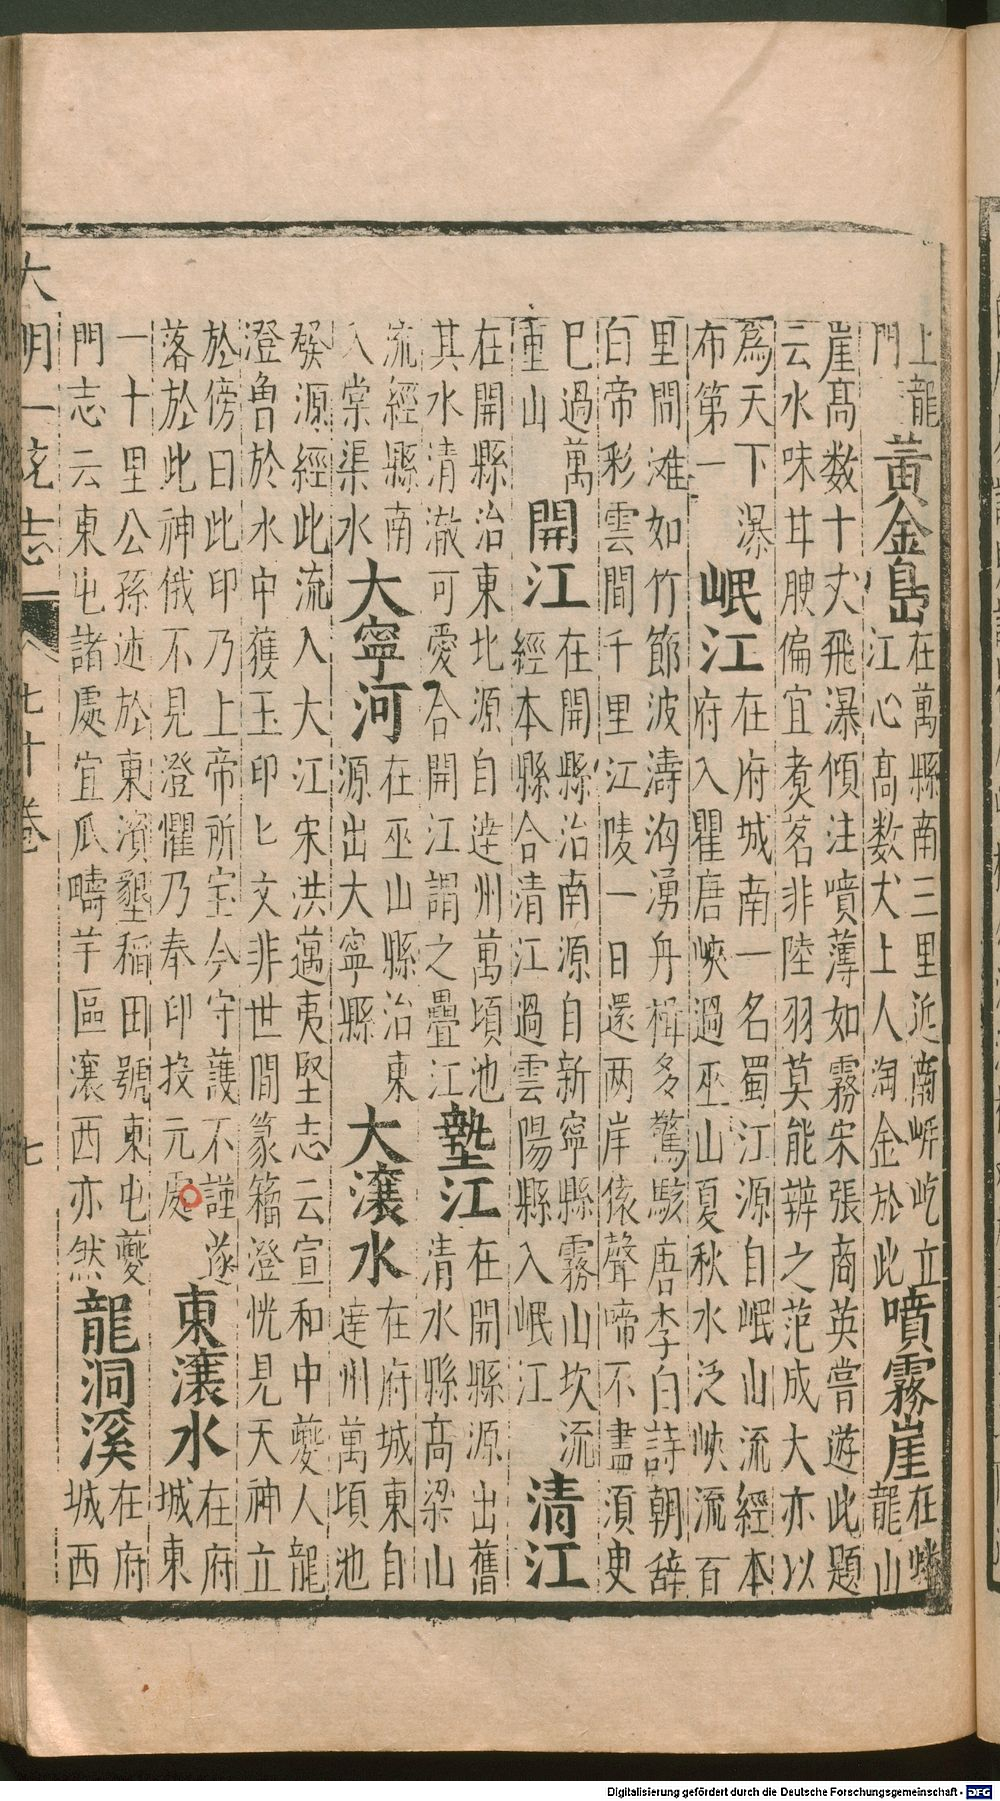 上龍
門
黃金島
在萬縣南三里近南岸屹立
江心高数丈上人淘金於此
噴霧崖
在蟠
龍山
崖高数十丈飛瀑傾注噴薄如霧宋張商英嘗遊此題
云水味甘腴偏宜煑茗非陸羽莫能辨之范成大亦以
爲天下瀑
布第一
岷江
在府城南一名蜀江源自岷山流經本
府入瞿唐峽過巫山夏秋水泛峽流百
里間灘如竹節波濤洶湧舟楫多驚駭唐李白詩朝辞
白帝彩雲間千里江陵一日還两岸猿聲啼不盡須臾
已過萬
重山
開江
在開縣治南源自新寧縣霧山坎流
經本縣合清江過雲陽縣入岷江
清江
在開縣治東北源自達州萬頃池
其水清澈可愛合開江謂之疊江
墊江
在開縣源出舊
清水縣高梁山
流經縣南
入棠渠水
大寧河
在巫山縣治東
源出大寧縣
大瀼水
在府城東自
達州萬頃池
發源經此流入大江宋洪邁夷堅志云宣和中夔人龍
澄魯於水中獲玉印七文非世間篆籀澄恍見天神立
於傍曰此印乃上帝所宝今守護不謹遂
落於此神俄不見澄懼乃奉印投元處
東瀼水
在府
城東
一十里公孫述於東濱墾稻田號東屯夔
門志云東屯諸處宜瓜疇芋區瀼西亦然
龍洞溪
在府
城西
大明一统志 七十卷 七
Digitalisierung gefördert durch die Deutsche Forschungsgemeinschaft - DFG